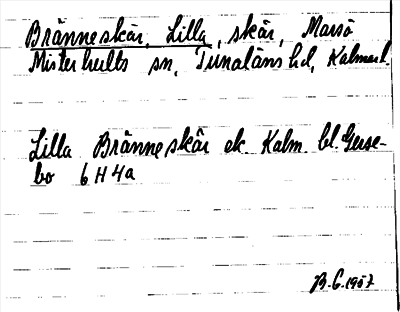 Bränneskär, Lilla, skär, Marsö
Misterhults sn, Tunaläns hd, Kalmar l.
Lilla Bränneskär ek. Kalm. bl. Gerse-
bo 6 H 4a
B.G. 1957